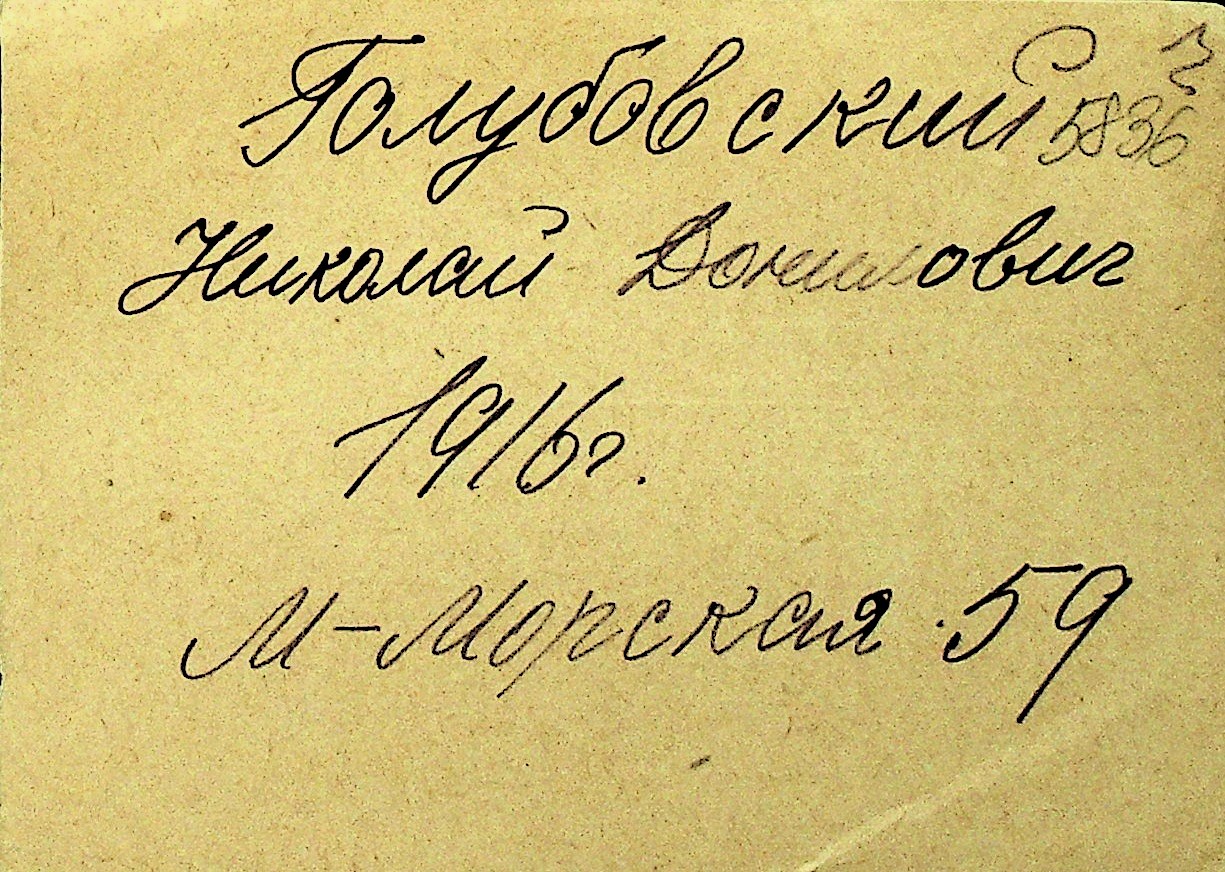 Голубовский
5836
Николай Данилович
1916г.
М-Морская 59